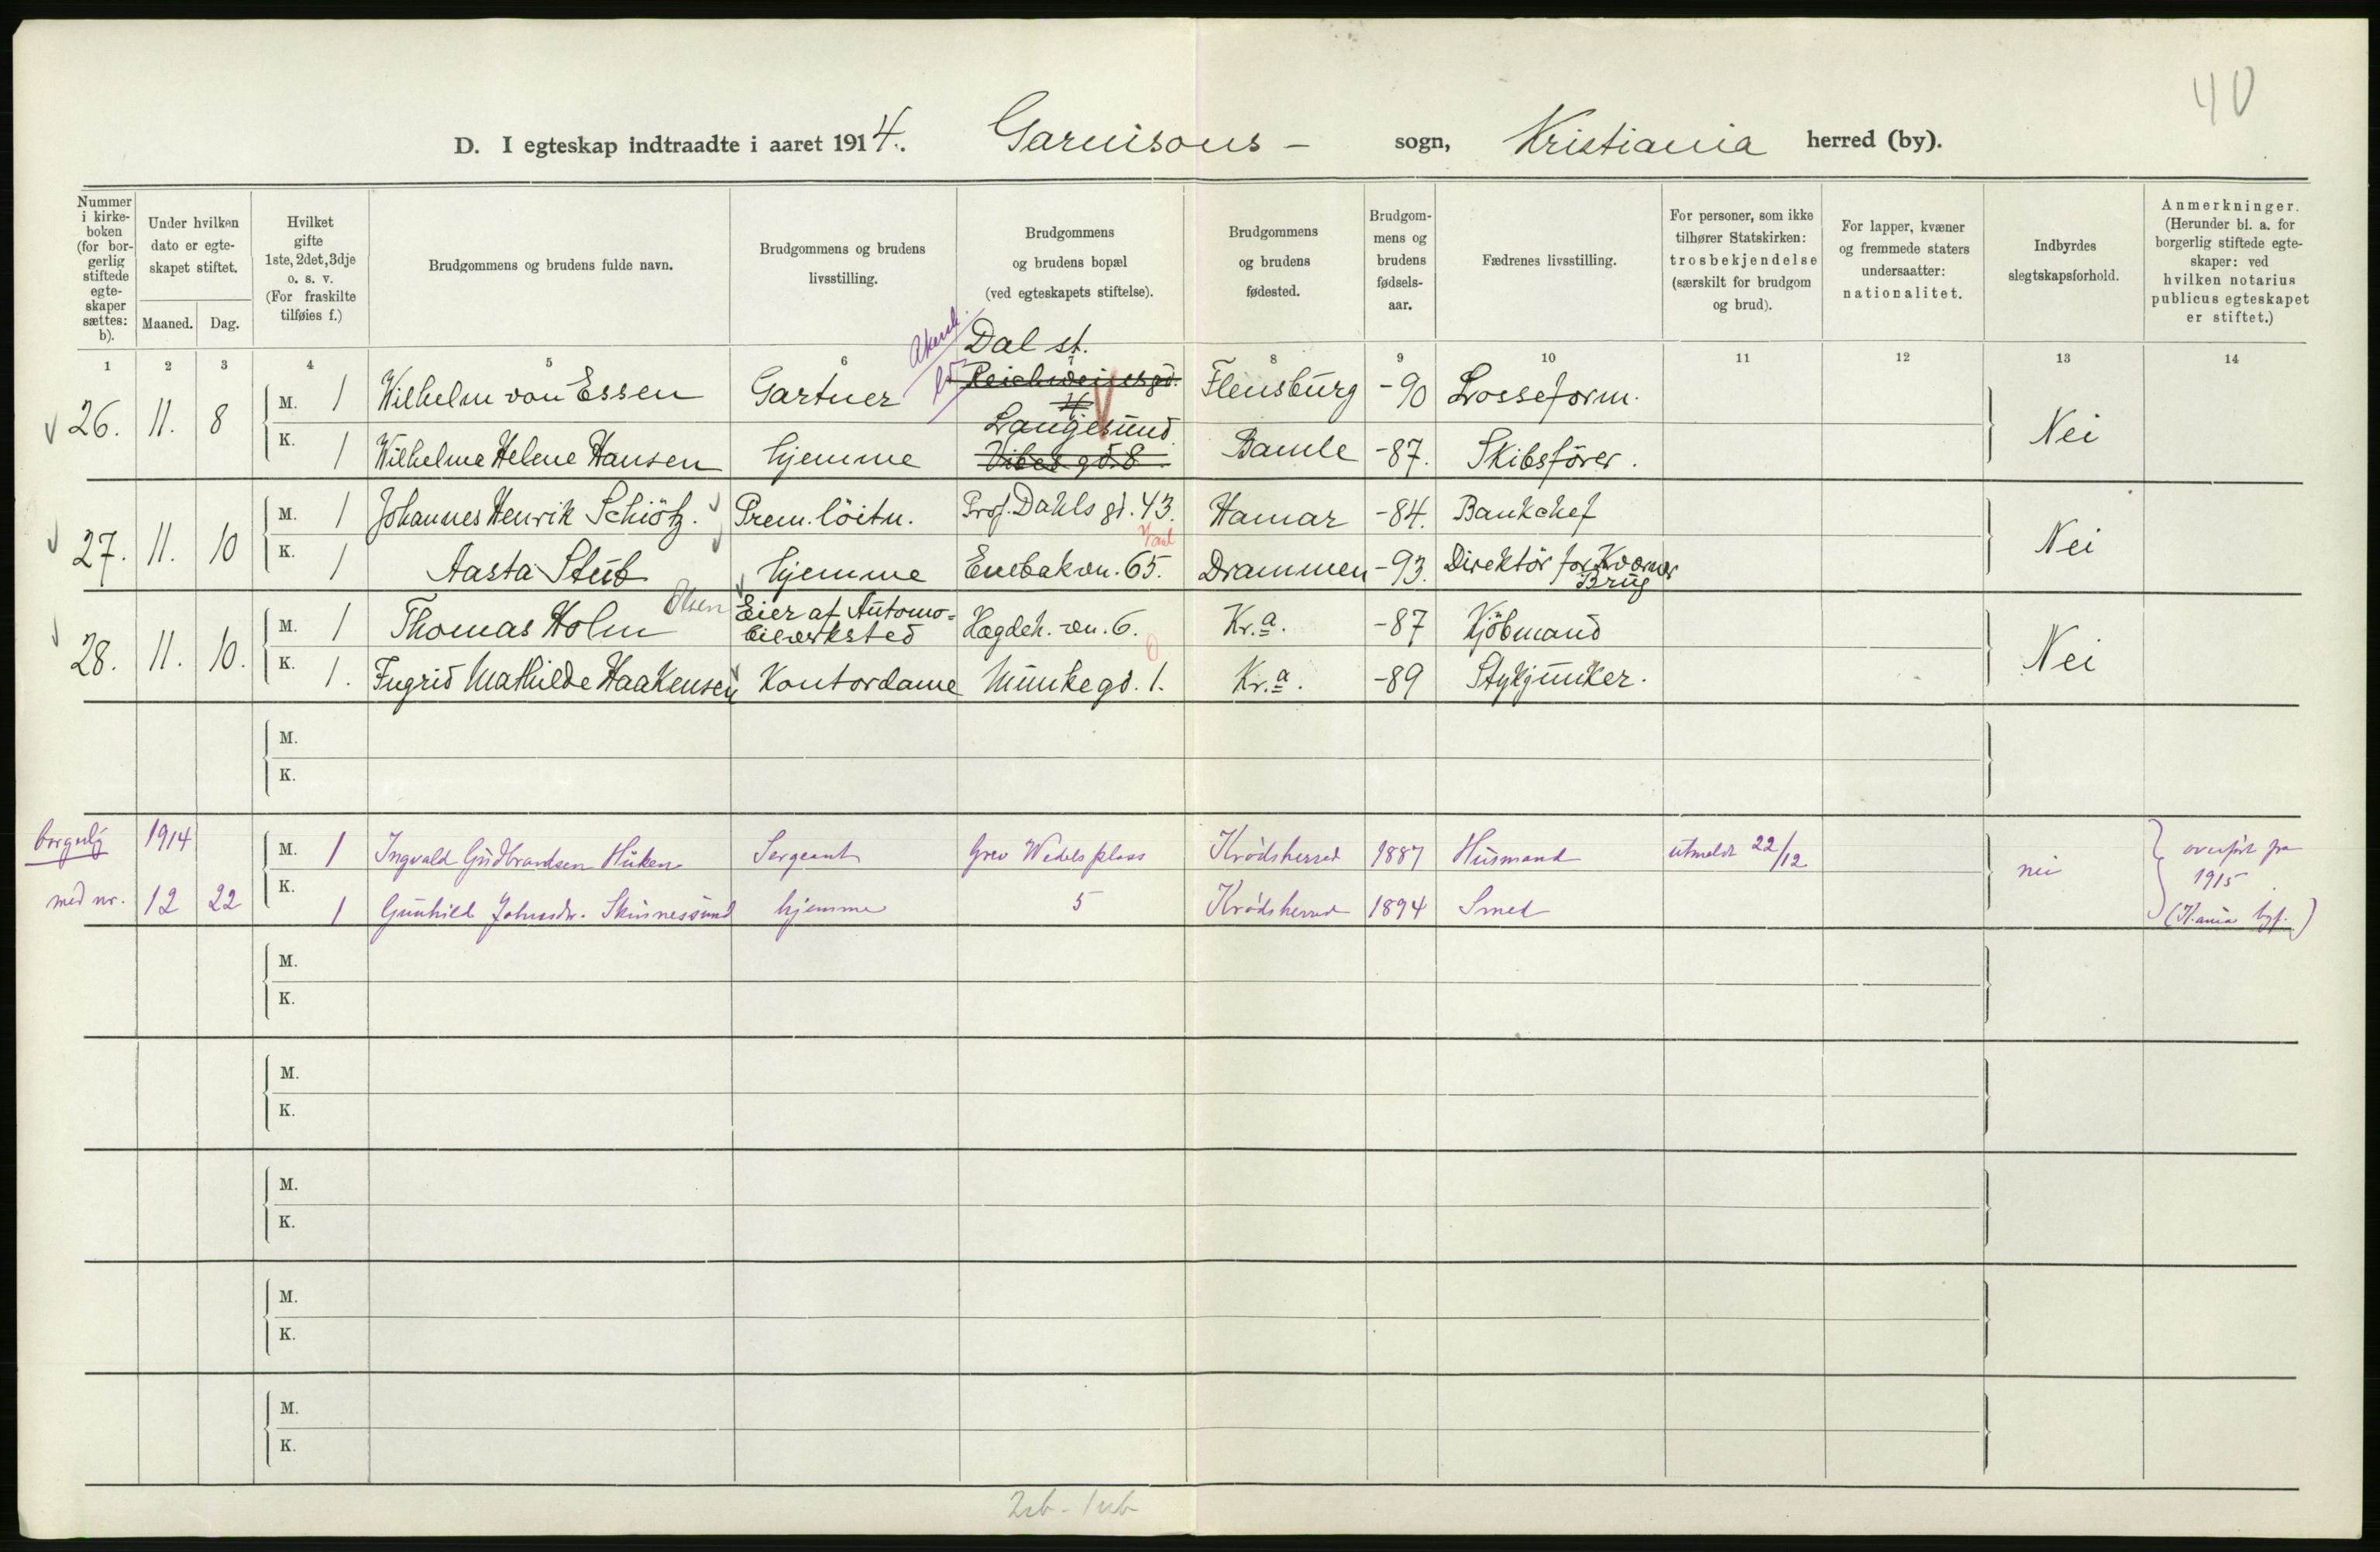 40
D. I egteskap indtraadte i aaret 1914. Garnisons - sogn, Kristiania herred (by).
Nummer i kirkeboken (for borgerlig stiftede egteskaper sættes: b).
Under hvilken dato er egteskapet stiftet.
Maaned. Dag.
Hvilket gifte 1ste, 2det, 3dje o. s. v. (For fraskilte tilføies f.)
Brudgommens og brudens fulde navn.
Brudgommens og brudens livsstilling.
Brudgommens og brudens bopæl (ved egteskapets stiftelse).
Brudgommens og brudens fødested.
Brudgommens og brudens fødselsaar.
Fædrenes livsstilling.
For personer, som ikke tilhører Statskirken: trosbekjendelse (særskilt for brudgom og brud).
For lapper, kvæner og fremmede staters undersaatter: nationalitet.
Indbyrdes slegtskapsforhold.
Anmerkninger. (Herunder bl. a. for borgerlig stiftede egteskaper: ved hvilken notarius publicus egteskapet er stiftet.)
1 2 3 4 5 6 8 9 10 11 12 13 14
Dal st.
26. 11. 8 M. 1 Wilhelm von Essen Gartner Flensburg -90 Losseform. Nei
K. 1 Wilhelme Helene Hansen hjemme Langesund Vibes gd. 8 Bamle -87. Skibsfører.
27. 11. 10 M. 1 Johannes Henrik Schiötz. Prem. löitn. Prof. Dahls gt. 43. Hamar -84. Bankchef Nei
K. 1 Aasta Stub hjemme Enebakvn. 65. Drammen -93. Direktör for Kværner Brug
28. 11. 10. M. 1 Thomas Holm Olsen Eier af Automobilverksted Hægdeh. vn. 6. Kr.a. -87 Kjöbmand Nei
K. 1. Ingrid Mathilde Haakensen Kontordame Munkegd. 1. Kr.a. -89 Stykjunker.
M.
K.
borgerlig 1914 M. 1 Ingvald Gudbrandsen Huken Sergeant Grev Wedels plass Krödsherred 1887 Husmand utmeldt 22/12 nei overført fra 1915
med nr. 12 22 K. 1 Gunhild Johnsdr. Skinnessund hjemme 5 Krödsherred 1894 Smed (K.ania byf.)
M.
K.
M.
K.
M.
K.
M.
K.
M.
K.